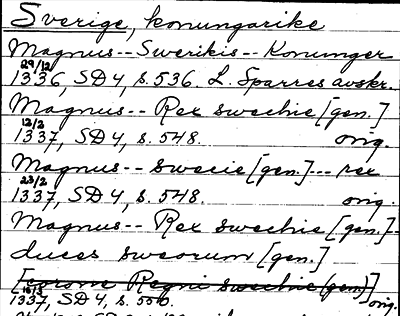 Sverige, konungarike
Magnus -- Swerikis -- Konunger
29/12
1336, SD 4, s. 536. L. Sparres avskr.
Magnus -- Rex swechie [gen.]
12/2
1337, SD 4, s. 548. orig.
Magnus -- swecie [gen.] --- rex
23/2
1337, SD 4, s. 548. orig.
Magnus -- Rex swechie [gen.] --
duces sweorum [gen.]
[corone Regni swechie (gen)]
1337, SD 4, s. 550. orig.